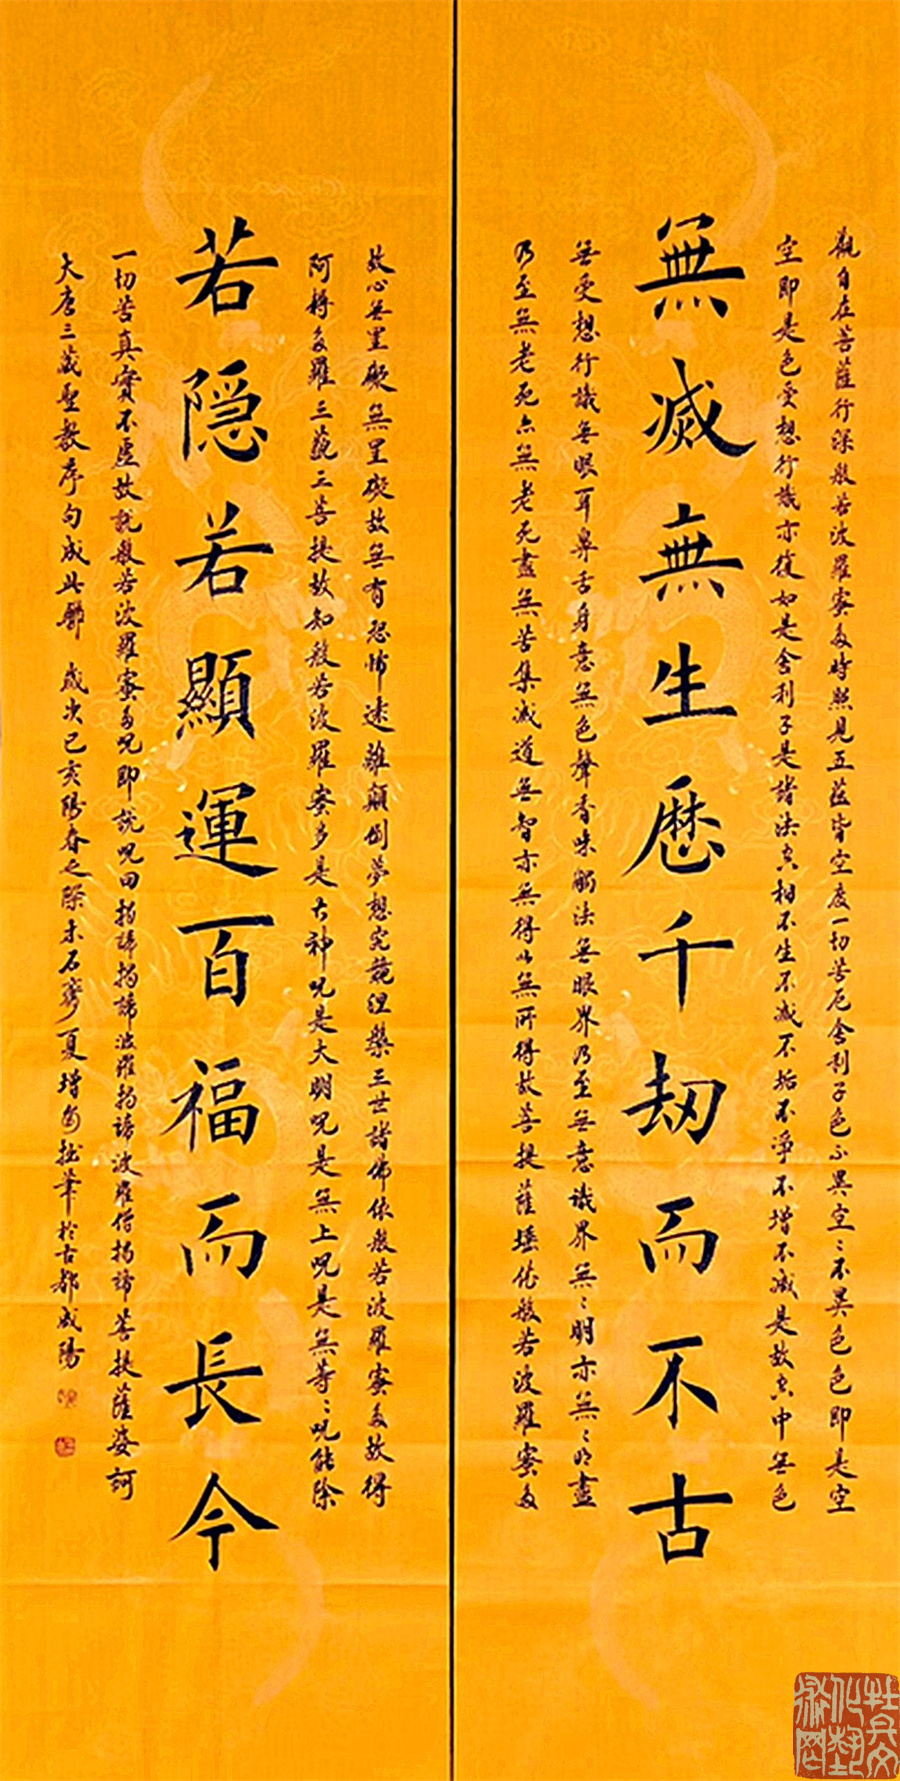 觀自在菩薩行深般若波羅蜜多時照見五蘊皆空度一切苦厄舍利子色不異空〻不異色色即是空
空即是色受想行識亦復如是舍利子是諸法空相不生不滅不垢不淨不增不減是故空中無色
無滅無生歷千劫而不古
無受想行識無眼耳鼻舌身意無色聲香味觸法無眼界乃至無意識界無〻明亦無〻明盡
乃至無老死亦無老死盡無苦集滅道無智亦無得以無所得故菩提薩埵依般若波羅蜜多
故心無罣礙無罣礙故無有恐怖遠離顛倒夢想究竟涅槃三世諸佛依般若波羅蜜多故得
阿耨多羅三藐三菩提故知般若波羅蜜多是大神咒是大明咒是無上咒是無等〻咒能除
若隱若顯運百福而長今
一切苦真實不虛故說般若波羅蜜多咒即說咒曰揭諦揭諦波羅揭諦波羅僧揭諦菩提薩婆訶
大唐三藏聖教序句成此聯 歲次己亥陽春之際未石齋夏增拙筆於古都咸陽
牡丹文
化藝
術网